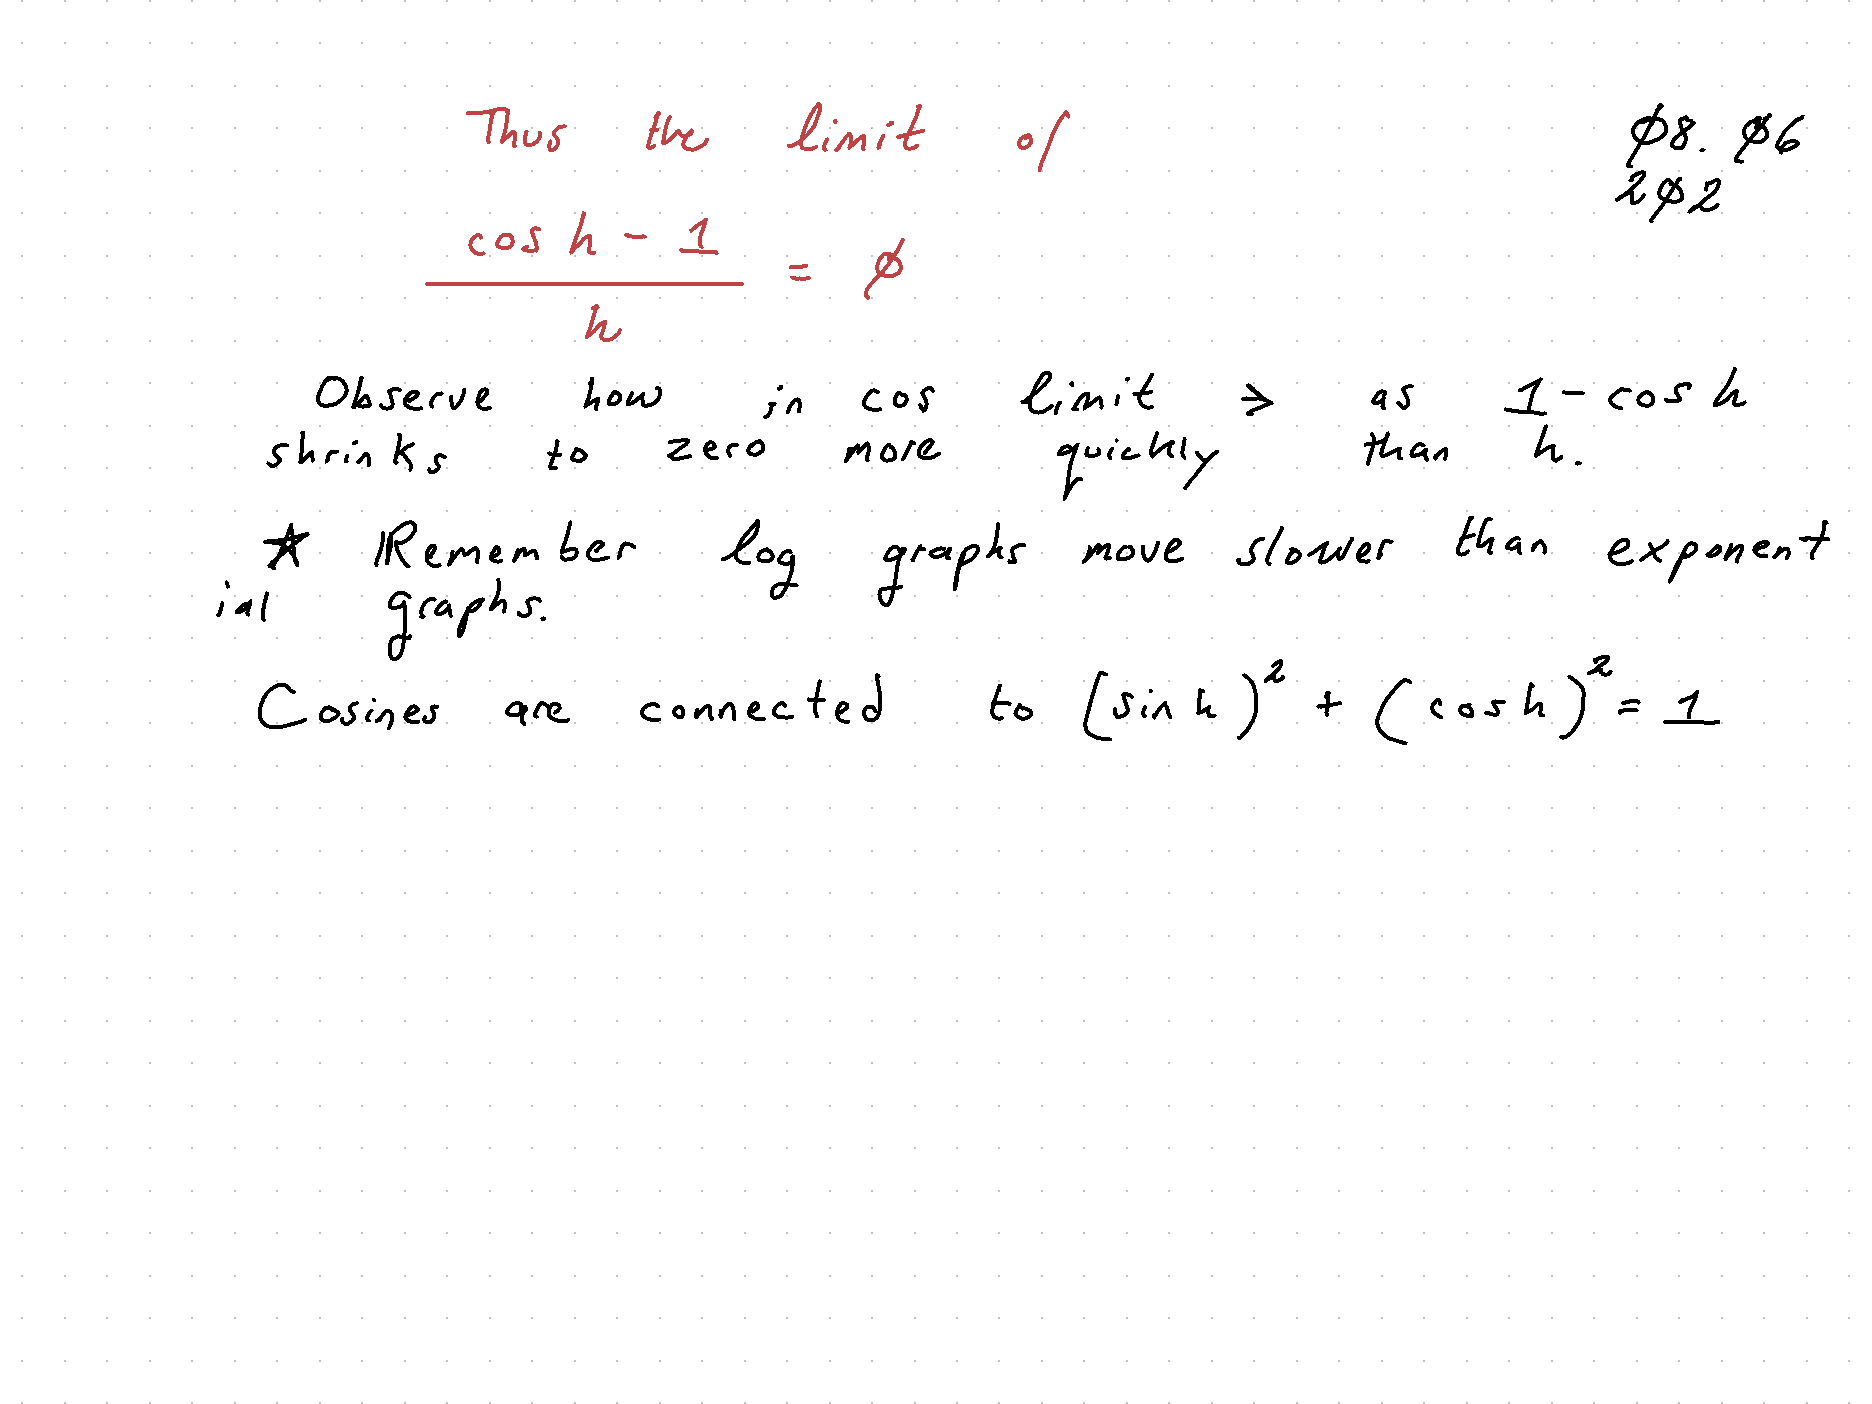 Thus the limit of
cos h - 1
h
= Ø
Ø8. Ø6
2Ø2
Observe how in cos limit → as 1 - cos h
shrinks to zero more quickly than h.
★ Remember log graphs move slower than exponent
ial graphs.
Cosines are connected to (sin h)² + (cos h)² = 1